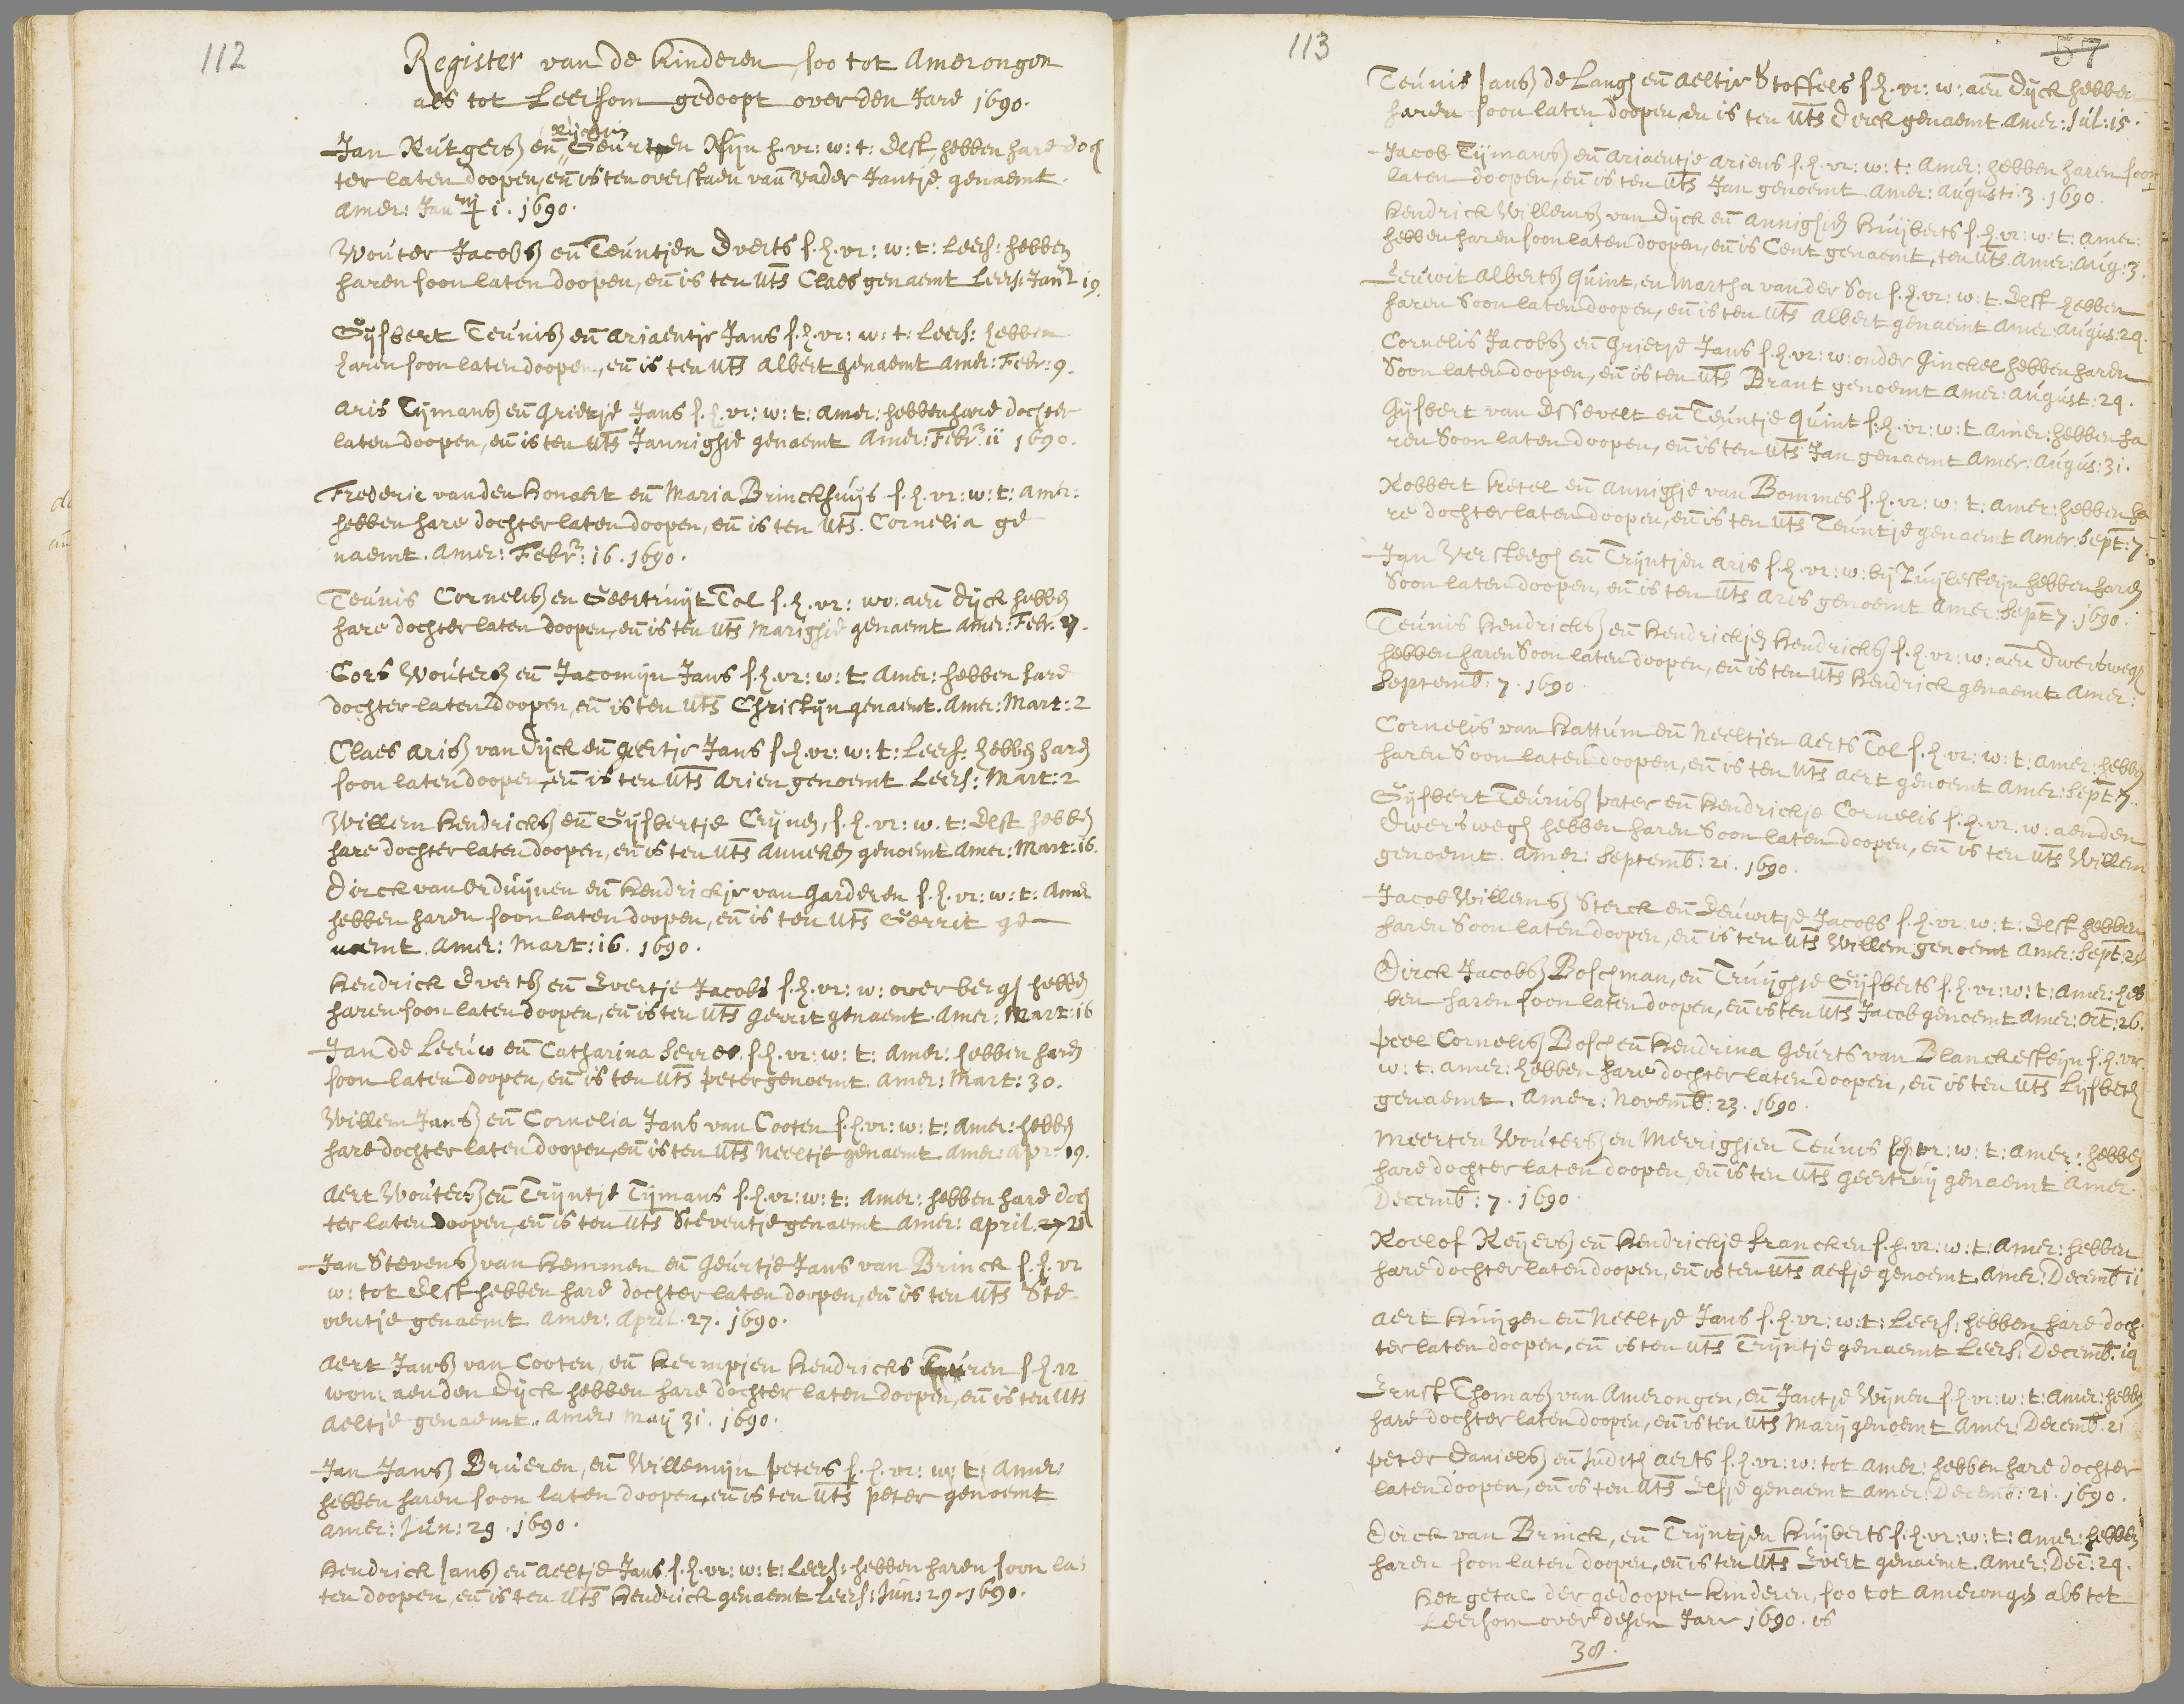 112
Register van de kinderen, soo tot Amerongen
als tot Leersom gedoopt over den Jare 1690.
Jan Rutgersz en̄ Geurtjen Rijn h. vr: w: t: Elst, hebben hare doch
ter laten doopen, en̄ is ten overstaen van̄ Vader Jantje genaemt.
Amer: Jan. 1. 1690.
Wouter Jacobsz en̄ Teuntjen Everts s. h. vr: w: t: Leers: hebben
haren soon laten doopen, en̄ is ten uts Claes genaemt Leers: Jan 19.
Gijsbert Teunisz en̄ Ariaentje Jans s. h. vr: w: t: Leers: hebben
haren soon laten doopen, en̄ is ten uts Albert genaemt Amer: Febr: 9.
Aris Tijmansz en̄ Grietje Jans s. h. vr: w: t: Amer: hebben hare dochter
laten doopen, en̄ is ten uts Jannighje genaemt Amer: Febr: 11 1690.
Frederic vanden Honaert en̄ Maria Brinckhuijs s. h. vr: w: t: Amer:
hebben hare dochter laten doopen, en̄ is ten uts. Cornelia ge
naemt. Amer: Febr: 16. 1690.
Teunis Cornelisz en Geertruijt Tol s. h. vr: wo: aen̄ Dijck hebben
hare dochter laten doopen, en̄ is ten uts Marighje genaemt Amer: Febr.
Cors Woutersz en̄ Jacomijn Jans s. h. vr: w: t: Amer: hebben hare
dochter laten doopen, en̄ is ten uts Christijn genaemt. Amer: Mart: 2
Claes Arisz van Dijck en̄ Geertje Jans s. h. vr: w: t: Leers: hebben haren
soon laten doopen, en̄ is ten uts Arien genoemt Leers: Mart: 2
Willem Hendricksz en̄ Gijsbertje Crijnen, s. h. vr: w. t: Elst hebben
hare dochter laten doopen, en̄ is ten uts Anneken genoemt Amer: Mart: 16.
Dirck van Orduijnen en̄ Hendrickje van Garderen s. h. vr: w: t: Amer
hebben haren soon laten doopen, en̄ is ten uts Gerrit ge
naemt. Amer: Mart: 16. 1690.
Hendrick Evertsz en̄ Evertje Jacobs s. h. vr: w: over bergh hebben
haren soon laten doopen, en̄ is ten uts Gerrit genaemt. Amer: Mart: 16
Jan de Leeuw en̄ Catharina s. h. vr: w: t: Amer: hebben haren
soon laten doopen, en̄ is ten uts peter genoemt Amer: Mart: 30.
Willem Jansz en̄ Cornelia Jans van Cooten s. h. vr: w: t: Amer: hebben
hare dochter laten doopen, en̄ is ten uts Neeltje genaemt. Amer: Apr: 19.
Aert Woutersz en̄ Trijntje Tijmans s. h. vr: w: t: Amer: hebben hare doch
ter laten doopen, en̄ is ten uts Steventje genaemt Amer: April. 27 21
Jan Stevensz van Hemmen en̄ Geurtje Jans van Brinck s. h. vr
w: tot Elst hebben hare dochter laten doopen, en̄ is ten uts Ste-
ventje genaemt Amer: April. 27. 1690.
Aert Jansz van Cooten, en̄ Hermpjen Hendricks s. h. vr
won: aen den Dijck hebben hare dochter laten doopen, en̄ is ten uts
Aeltje genaemt. Amer: Maij 31. 1690.
Jan Jansz Brueren, en̄ Willemijn peters s. h. vr: w: t: Amer:
hebben haren soon laten doopen, en̄ is ten uts peter genoemt
Amer: Jun: 29. 1690.
Hendrick Jansz en̄ Aeltje Jans s. h. vr: w: t: Leers: hebben haren soon la-
ten doopen, en̄ is ten uts Hendrick genaemt Leers: Jun: 29. 1690.
113
57
Teunis Jansz de Langh en̄ Aeltje Stoffels s. h. vr: w: aen̄ Dijck hebben
haren soon laten doopen, en is ten uts Dirck genaemt. Amer: Jul: 15.
Jacob Tijmansz en̄ Ariaentje Ariens s. h. vr: w: t: Amer: hebben haren soon
laten doopen, en̄ is ten uts Jan genoemt Amer: Augusti: 3. 1690.
Hendrick Willemsz van Dijck en̄ Annighjen Huijberts s. h. vr: w: t: Amer:
hebben haren soon laten doopen, en̄ is Cent genaemt, ten uts. Amer: Aug: 3.
Leuwit Albertsz Quint, en Martha van der Son s. h. vr: w: t. Elst hebben
haren Soon laten doopen, en̄ is ten uts Albert genaemt Amer. Augus: 29.
Cornelis Jacobsz en̄ Grietje Jans s. h. vr: w: onder Ginckel hebben haren
Soon laten doopen, en̄ is ten uts Brant genoemt Amer: August: 29.
Gijsbert van Essevelt en̄ Teuntje Quint s. h. vr: w: t Amer: hebben ha
ren Soon laten doopen, en̄ is ten uts Jan genaemt Amer: Augus: 31.
Robbert Ketel en̄ Annighje van Bommes s. h. vr: w: t: Amer: hebben ha
re dochter laten doopen, en̄ is ten uts Teuntje genaemt Amer: Sept: 7.
Jan Versteegh en̄ Trijntjen Aris s. h. vr: w: bij Zuijlesteijn hebben haren
Soon laten doopen, en̄ is ten uts Aris genoemt Amer: Sept 7. 1690.
Teunis Hendricksz en̄ Hendrickjen Hendricks s. h. vr: w: aen̄ Dwerswegh
hebben haren Soon laten doopen, en̄ is ten uts Hendrick genaemt Amer:
Septemb: 7. 1690.
Cornelis van Hattum en̄ Neeltjen Aerts Tol s. h. vr: w: t: Amer: hebben
haren Soon laten doopen, en̄ is ten uts Aert genoemt Amer: Sept: 7.
Gijsbert Teunisz pater en̄ Hendrickje Cornelis s. h. vr: w: aen den
Dwerswegh hebben haren Soon laten doopen, en̄ is ten uts Willem
genoemt. Amer: Septemb: 21. 1690.
Jacob Willemsz Sterck en̄ Leuwitje Jacobs s. h. vr: w: t: Elst hebben
haren Soon laten doopen, en̄ is ten uts Willem genoemt Amer: Sept: 21
Dirck Jacobsz Boschman, en̄ Truijghje Gijsberts s. h. vr: w: t: Amer: heb
ben haren soon laten doopen, en̄ is ten uts Jacob genoemt Amer: Oct: 26.
peel Cornelisz Bosch en̄ Hendrina Geurts van Blanckesteijn s. h. vr:
w: t: Amer: hebben hare dochter laten doopen, en̄ is ten uts Lijsbeth
genaemt. Amer: Novemb: 23. 1690.
Meerten Woutersz en Merrighjen Teunis s. h. vr: w: t: Amer: hebben
hare dochter laten doopen, en̄ is ten uts Geertruij genaemt Amer.
Decemb: 7. 1690.
Roelof Reijersz en̄ Hendrickje francken s. h. vr: w: t: Amer: hebben
hare dochter laten doopen, en̄ is ten uts Aefje genoemt. Amer: Decemb 11
Aert Huijgen en̄ Neeltje Jans s. h. vr: w: t: Leers: hebben hare doch-
ter laten doopen, en̄ is ten uts Trijntje genaemt Leers: Decemb. 19
Ernst Thomasz van Amerongen, en̄ Jantje Wijnen s. h. vr: w: t: Amer: hebben
hare dochter laten doopen, en̄ is ten uts Marij genoemt Amer: Decemb. 21
peter Daniels en̄ Judith Aerts s. h. vr: w: tot Amer: hebben hare dochter
laten doopen, en̄ is ten uts Elsje genaemt Amer: Decemb: 21. 1690.
Dirck van Brinck, en̄ Trijntjen Huijberts s. h. vr: w: t: Amer: hebben
haren soon laten doopen, en̄ is ten uts Evert genaemt. Amer: Dec: 29.
Het getal der gedoopte kinderen, soo tot Amerongen als tot
Leersom over desen Jare 1690. is
38.